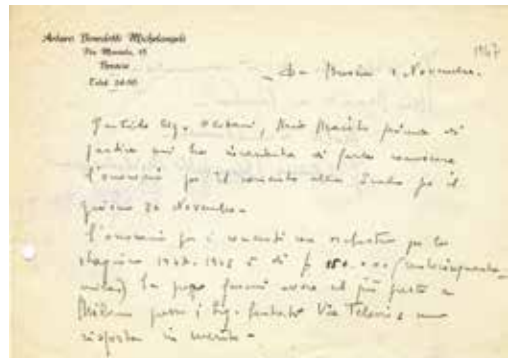 Arturo Benedetti Michelangeli
Via Marsala, 17
Brescia
1947
Da Brescia 2 Novembre.
Gentile Sig. Oldani, Mio Marito prima di
partire mi ha incaricata di farle conoscere
l'onorario per il concerto alla Scala per il
giorno 20 Novembre.
L'onorario per i concerti con orchestra per la
stagione 1947-1948 è di £ 150.000 (centocinquanta-
mila) La prego farmi avere al più presto a
Milano presso i Sig. Via una
risposta in merito.